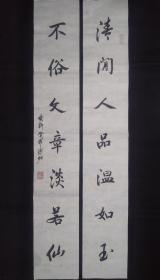 清闲人品温如玉
不俗文章淡若仙